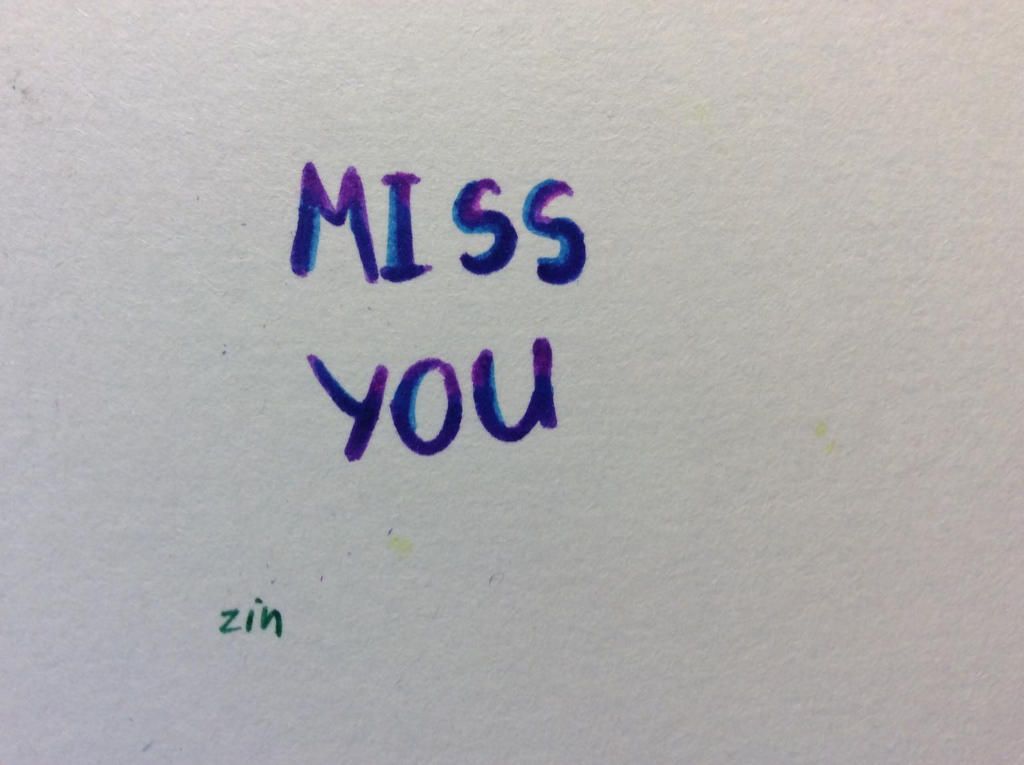 MISS
YOU
zin